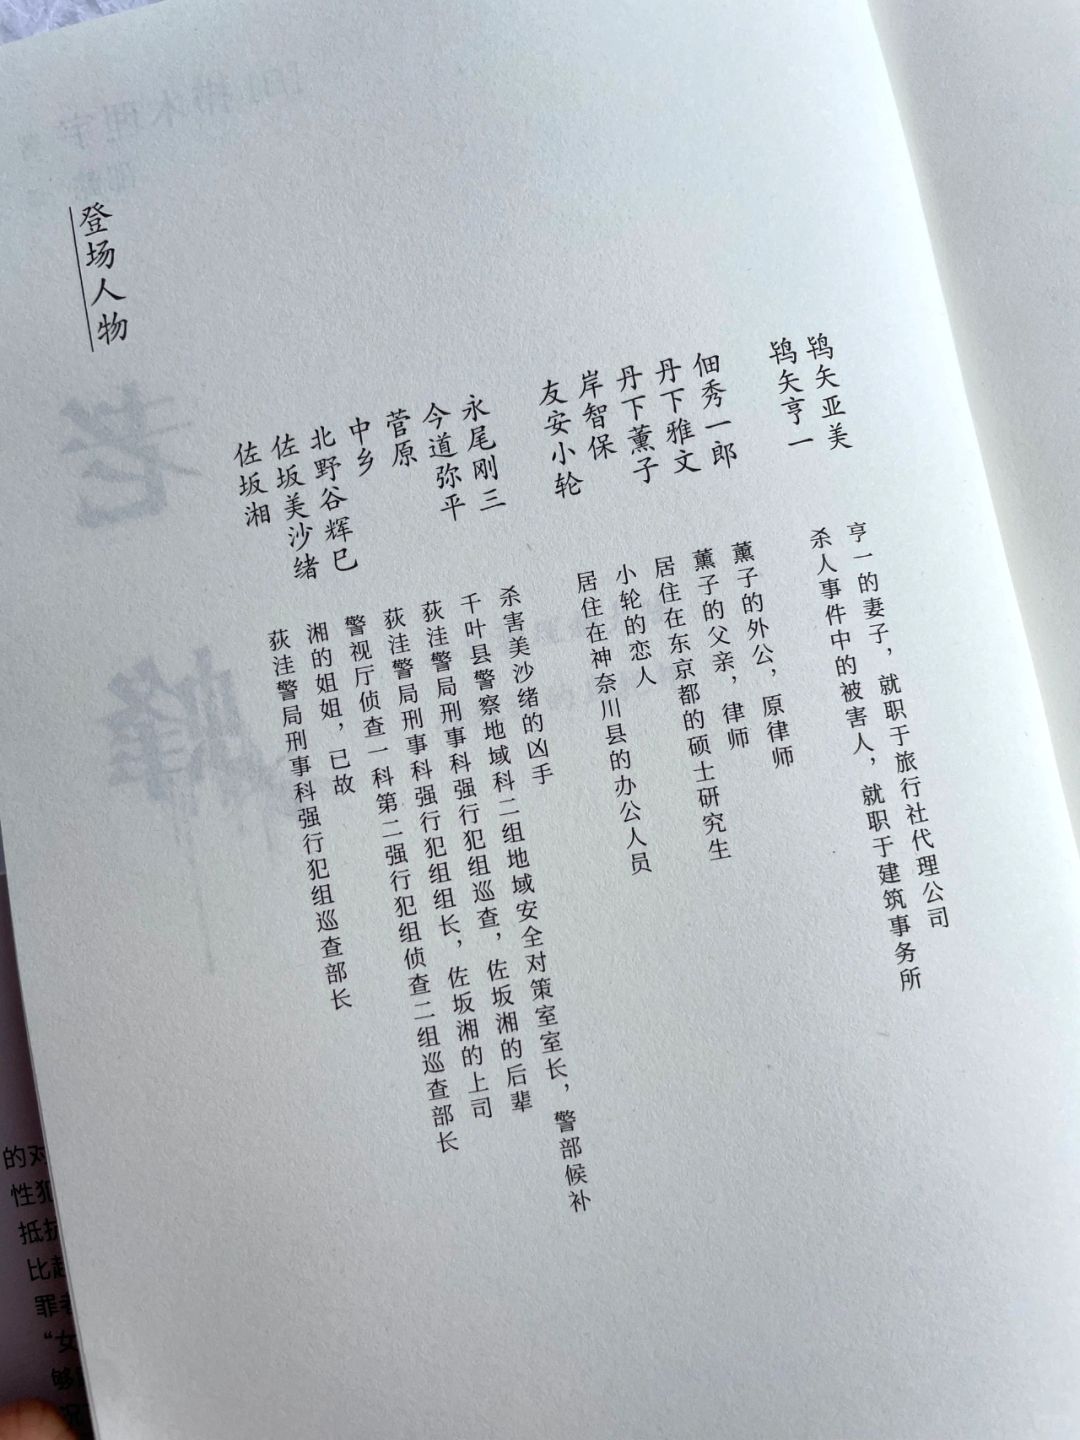 登场人物
佐坂湘 荻洼警局刑事科强行犯组巡查部长
佐坂美沙绪 湘的姐姐，已故
北野谷辉巳 警视厅侦查一科第二强行犯组侦查二组巡查部长
中乡 荻洼警局刑事科强行犯组组长，佐坂湘的上司
菅原 荻洼警局刑事科强行犯组巡查，佐坂湘的后辈
今道弥平 千叶县警察地域科二组地域安全对策室室长，警部候补
永尾刚三 杀害美沙绪的凶手
友安小轮 居住在神奈川县的办公人员
岸智保 小轮的恋人
丹下薰子 居住在东京都的硕士研究生
丹下雅文 薰子的父亲，律师
佃秀一郎 薰子的外公，原律师
鸨矢亨一 杀人事件中的被害人，就职于建筑事务所
鸨矢亚美 亨一的妻子，就职于旅行社代理公司
的对
性犯
抵抗
比起
罪者
“女
够